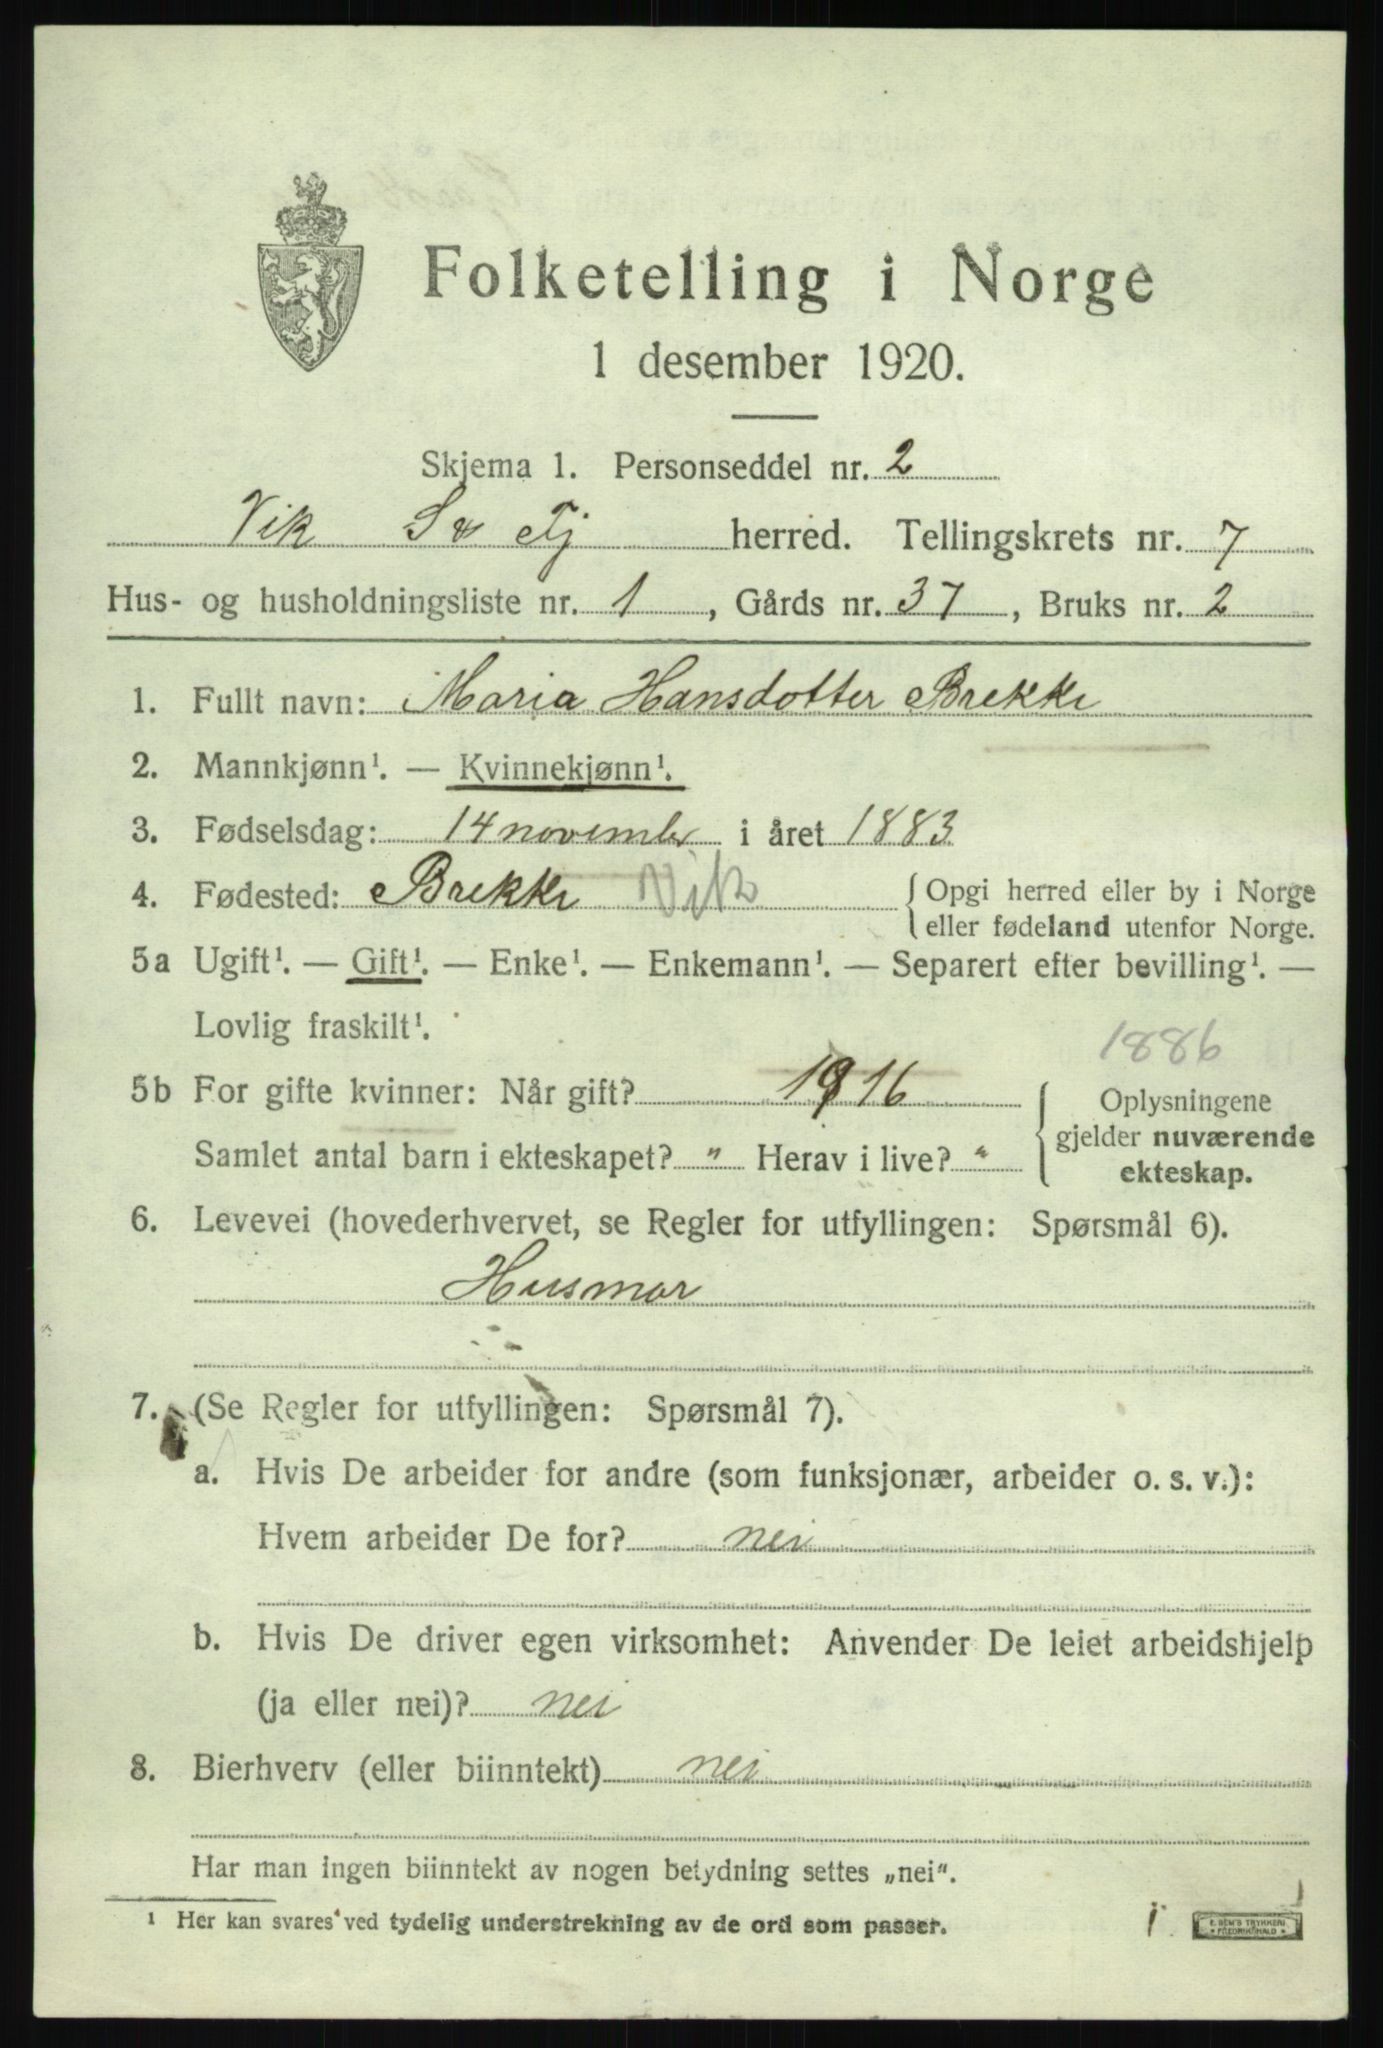 Folketelling i Norge
1 desember 1920.
Skjema 1. Personseddel nr. 2
Vik S & Fj herred. Tellingskrets nr. 7
Hus- og husholdningsliste nr. 1, Gårds nr. 37, Bruks nr. 2
1. Fullt navn: Maria Hansdotter Brekke
2. Mannkjønn¹. — Kvinnekjønn¹.
3. Fødselsdag: 14 november i året 1883
4. Fødested: Brekke Vik { Opgi herred eller by i Norge
eller fødeland utenfor Norge.
5a Ugift¹. — Gift¹. — Enke¹. — Enkemann¹. — Separert efter bevilling¹. —
Lovlig fraskilt¹.
1886
5b For gifte kvinner: Når gift? 1916 { Oplysningene
gjelder nuværende
ekteskap.
Samlet antal barn i ekteskapet? " Herav i live? "
6. Levevei (hovederhvervet, se Regler for utfyllingen: Spørsmål 6).
Husmor
7. (Se Regler for utfyllingen: Spørsmål 7).
a. Hvis De arbeider for andre (som funksjonær, arbeider o. s. v.):
Hvem arbeider De for? nei
b. Hvis De driver egen virksomhet: Anvender De leiet arbeidshjelp
(ja eller nei)? nei
8. Bierhverv (eller biinntekt) nei
Har man ingen biinntekt av nogen betydning settes „nei".
¹ Her kan svares ved tydelig understrekning av de ord som passer.
E. SEM'S TRYKKERI
FREDRIKSHALD